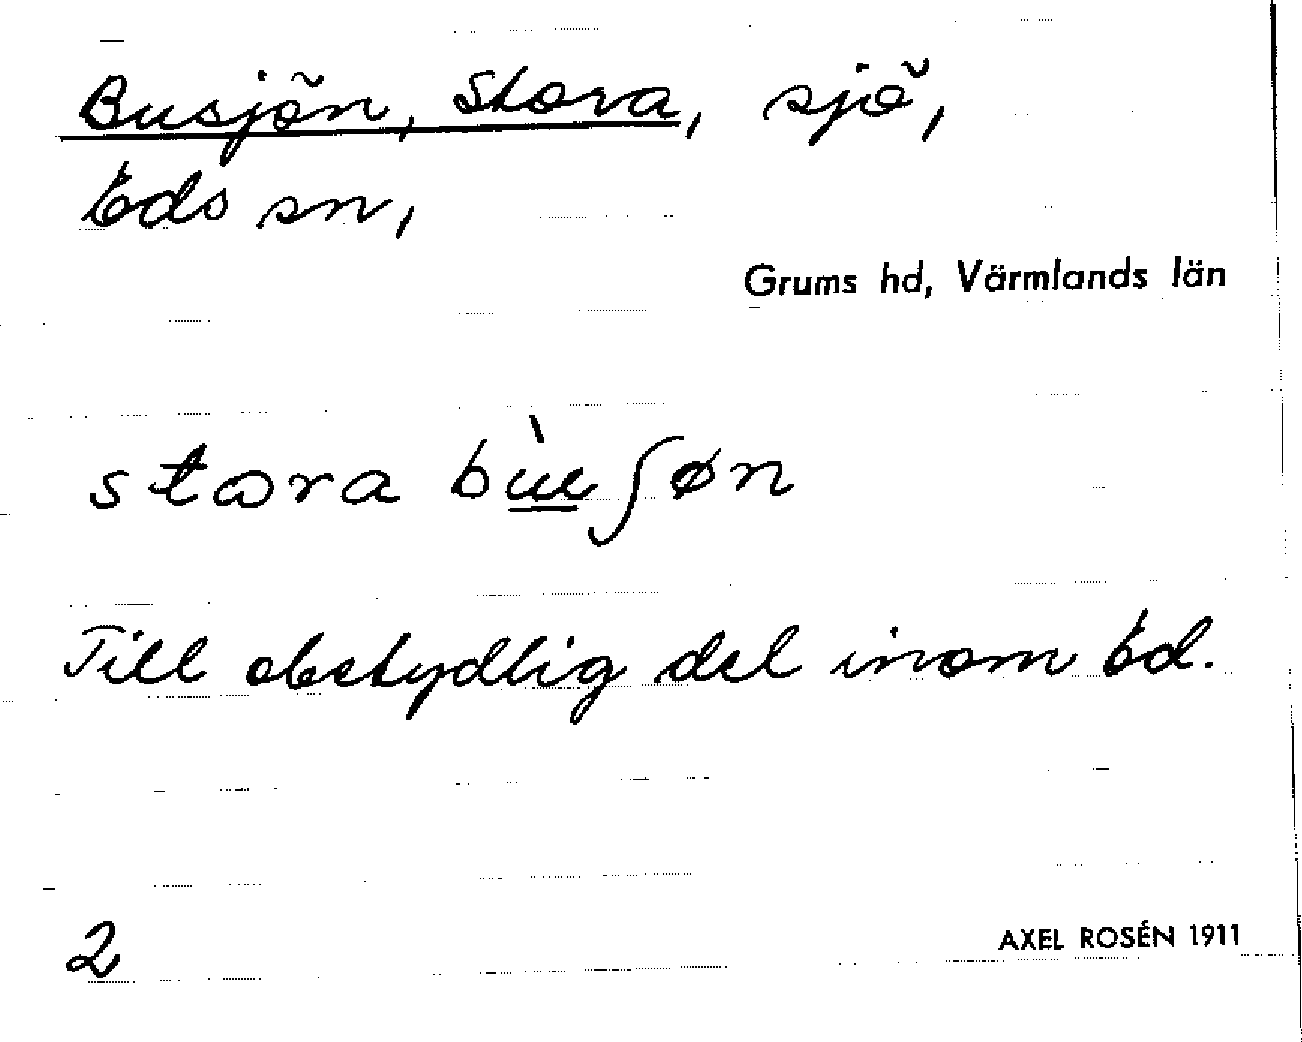 Busjön, Stora, sjö,
Eds sn,
Grums hd, Värmlands län
stora bùuʃøn
Till obetydlig del inom Ed.
2
AXEL ROSÉN 1911